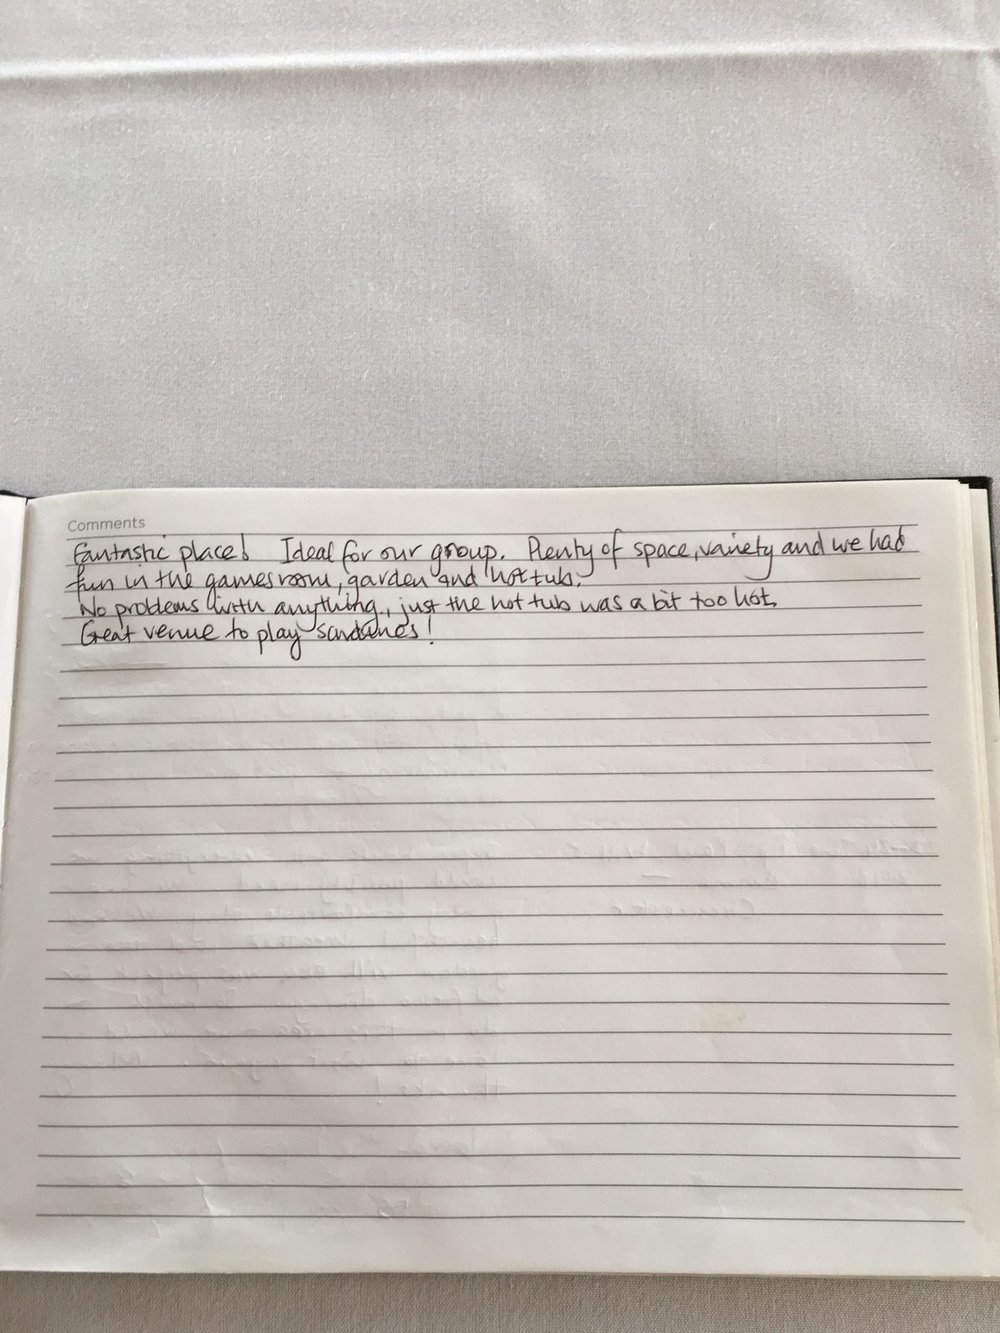 Comments
Fantastic place! Ideal for our group. Plenty of space, variety and we had
fun in the games room, garden and hot tub.
No problems with anything, just the hot tub was a bit too hot.
Great venue to play sardines!